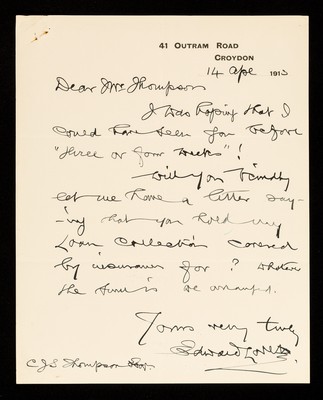 41 OUTRAM ROAD
CROYDON
14 Apl 1913
Dear Mr Thompson
I was hoping that I
could have seen you before
"three or four weeks"!
Will you kindly
let me have a letter say-
-ing that you hold my
Loan Collection covered
by insurance for? whatever
the sum is we arranged.
Yours very truly
Edward Lovett
C.J.S. Thompson Esq.